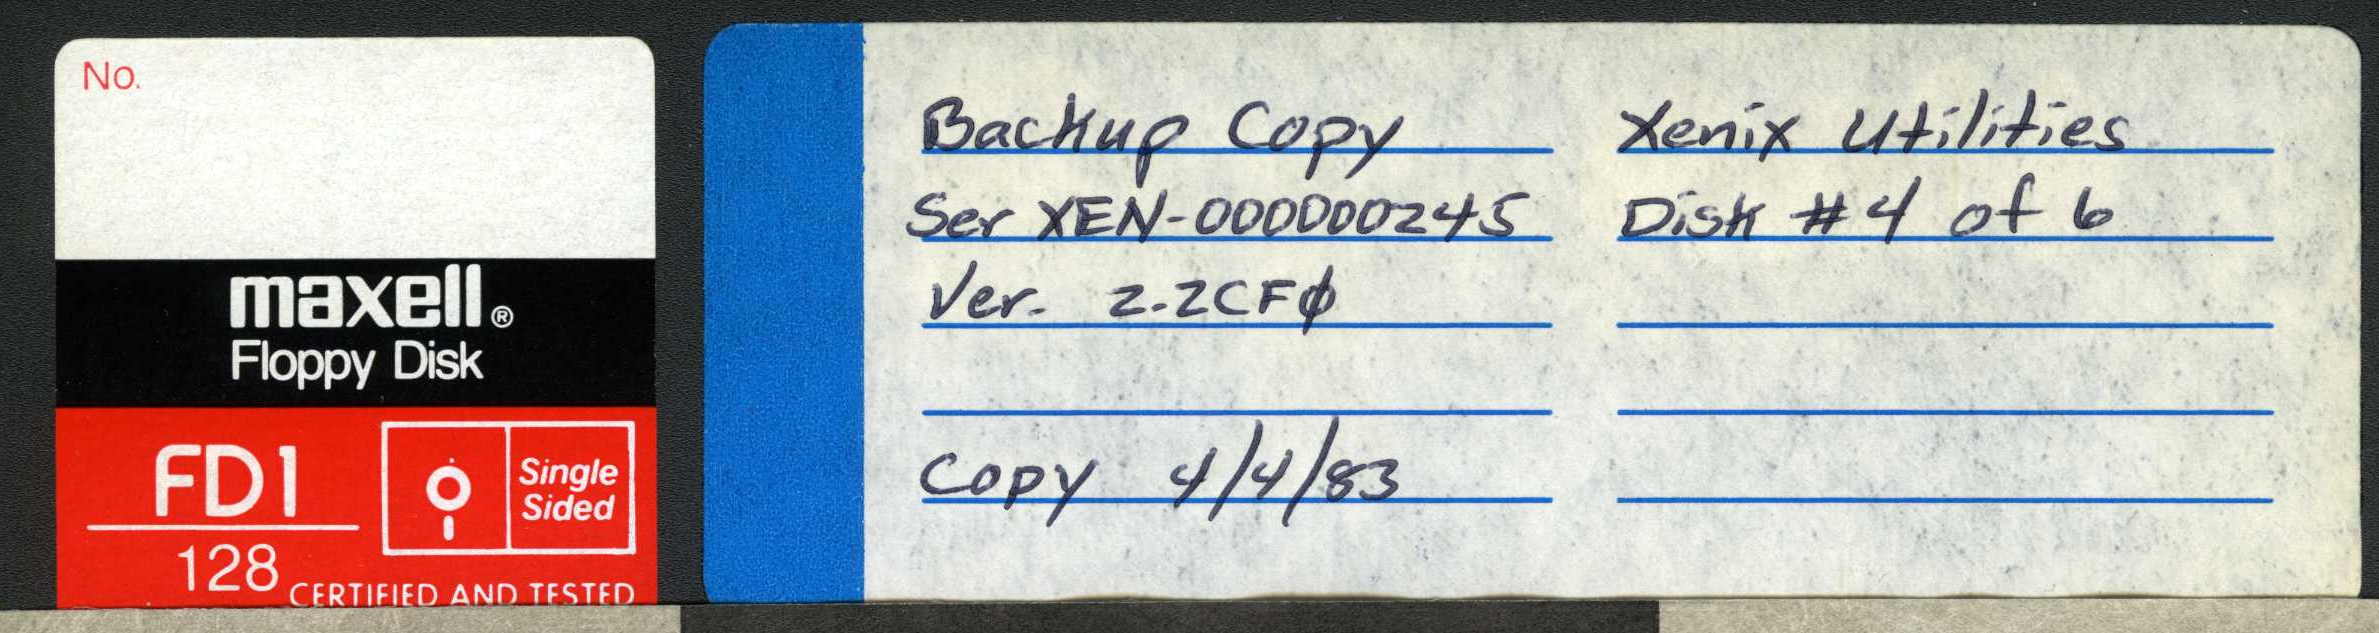 No.
maxell®
Floppy Disk
FD1
128
Single
Sided
CERTIFIED AND TESTED
Backup Copy
Ser XEN-000000245
Ver. 2.2CFø
Copy 4/4/83
Xenix Utilities
Disk #4 of 6